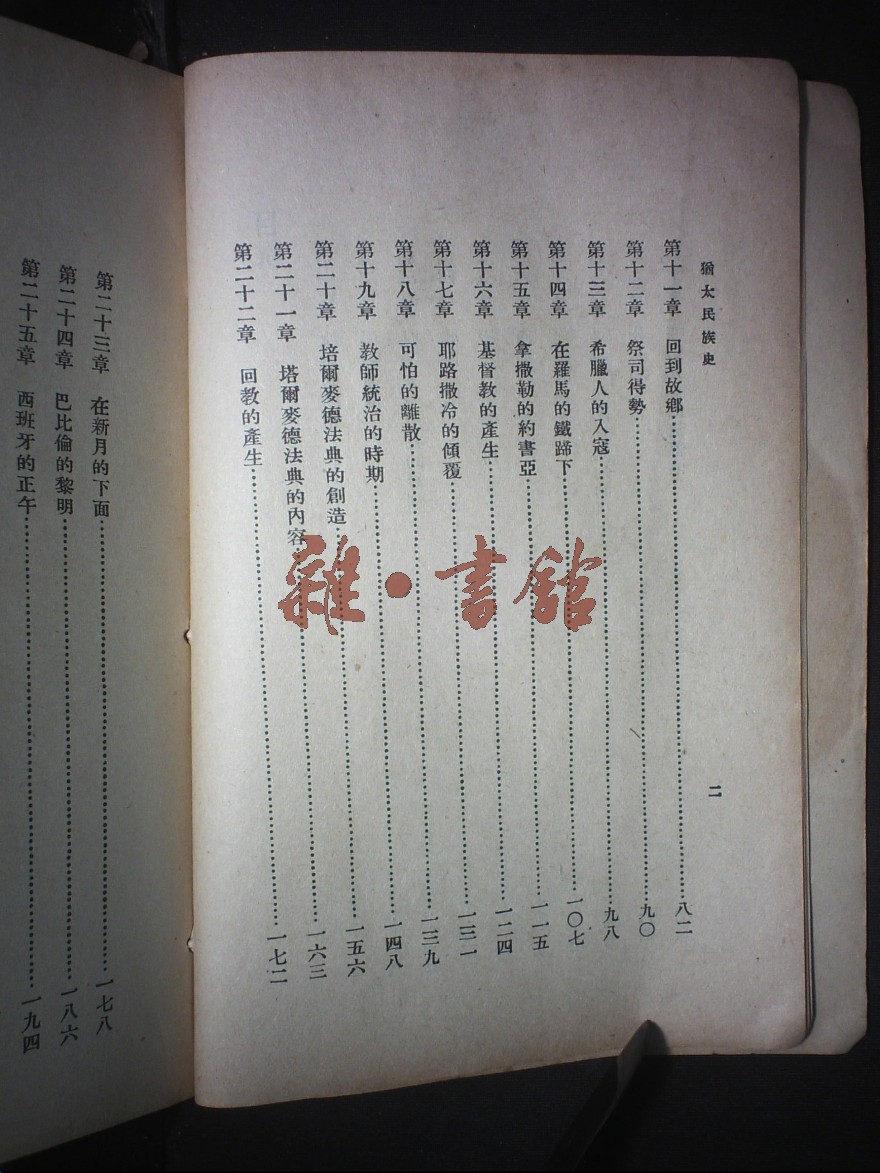 猶太民族史
二
第十一章 回到故鄉……八二
第十二章 祭司得勢……九〇
第十三章 希臘人的入寇……九八
第十四章 在羅馬的鐵蹄下……一〇七
第十五章 拿撒勒的約書亞……一一五
第十六章 基督教的產生……一二四
第十七章 耶路撒冷的傾覆……一三一
第十八章 可怕的離散……一三九
第十九章 教師統治的時期……一四八
第二十章 培爾麥德法典的創造……一五六
第二十一章 塔爾麥德法典的內容……一六三
第二十二章 回教的產生……一七二
第二十三章 在新月的下面……一七八
第二十四章 巴比倫的黎明……一八六
第二十五章 西班牙的正午……一九四
雜·書館